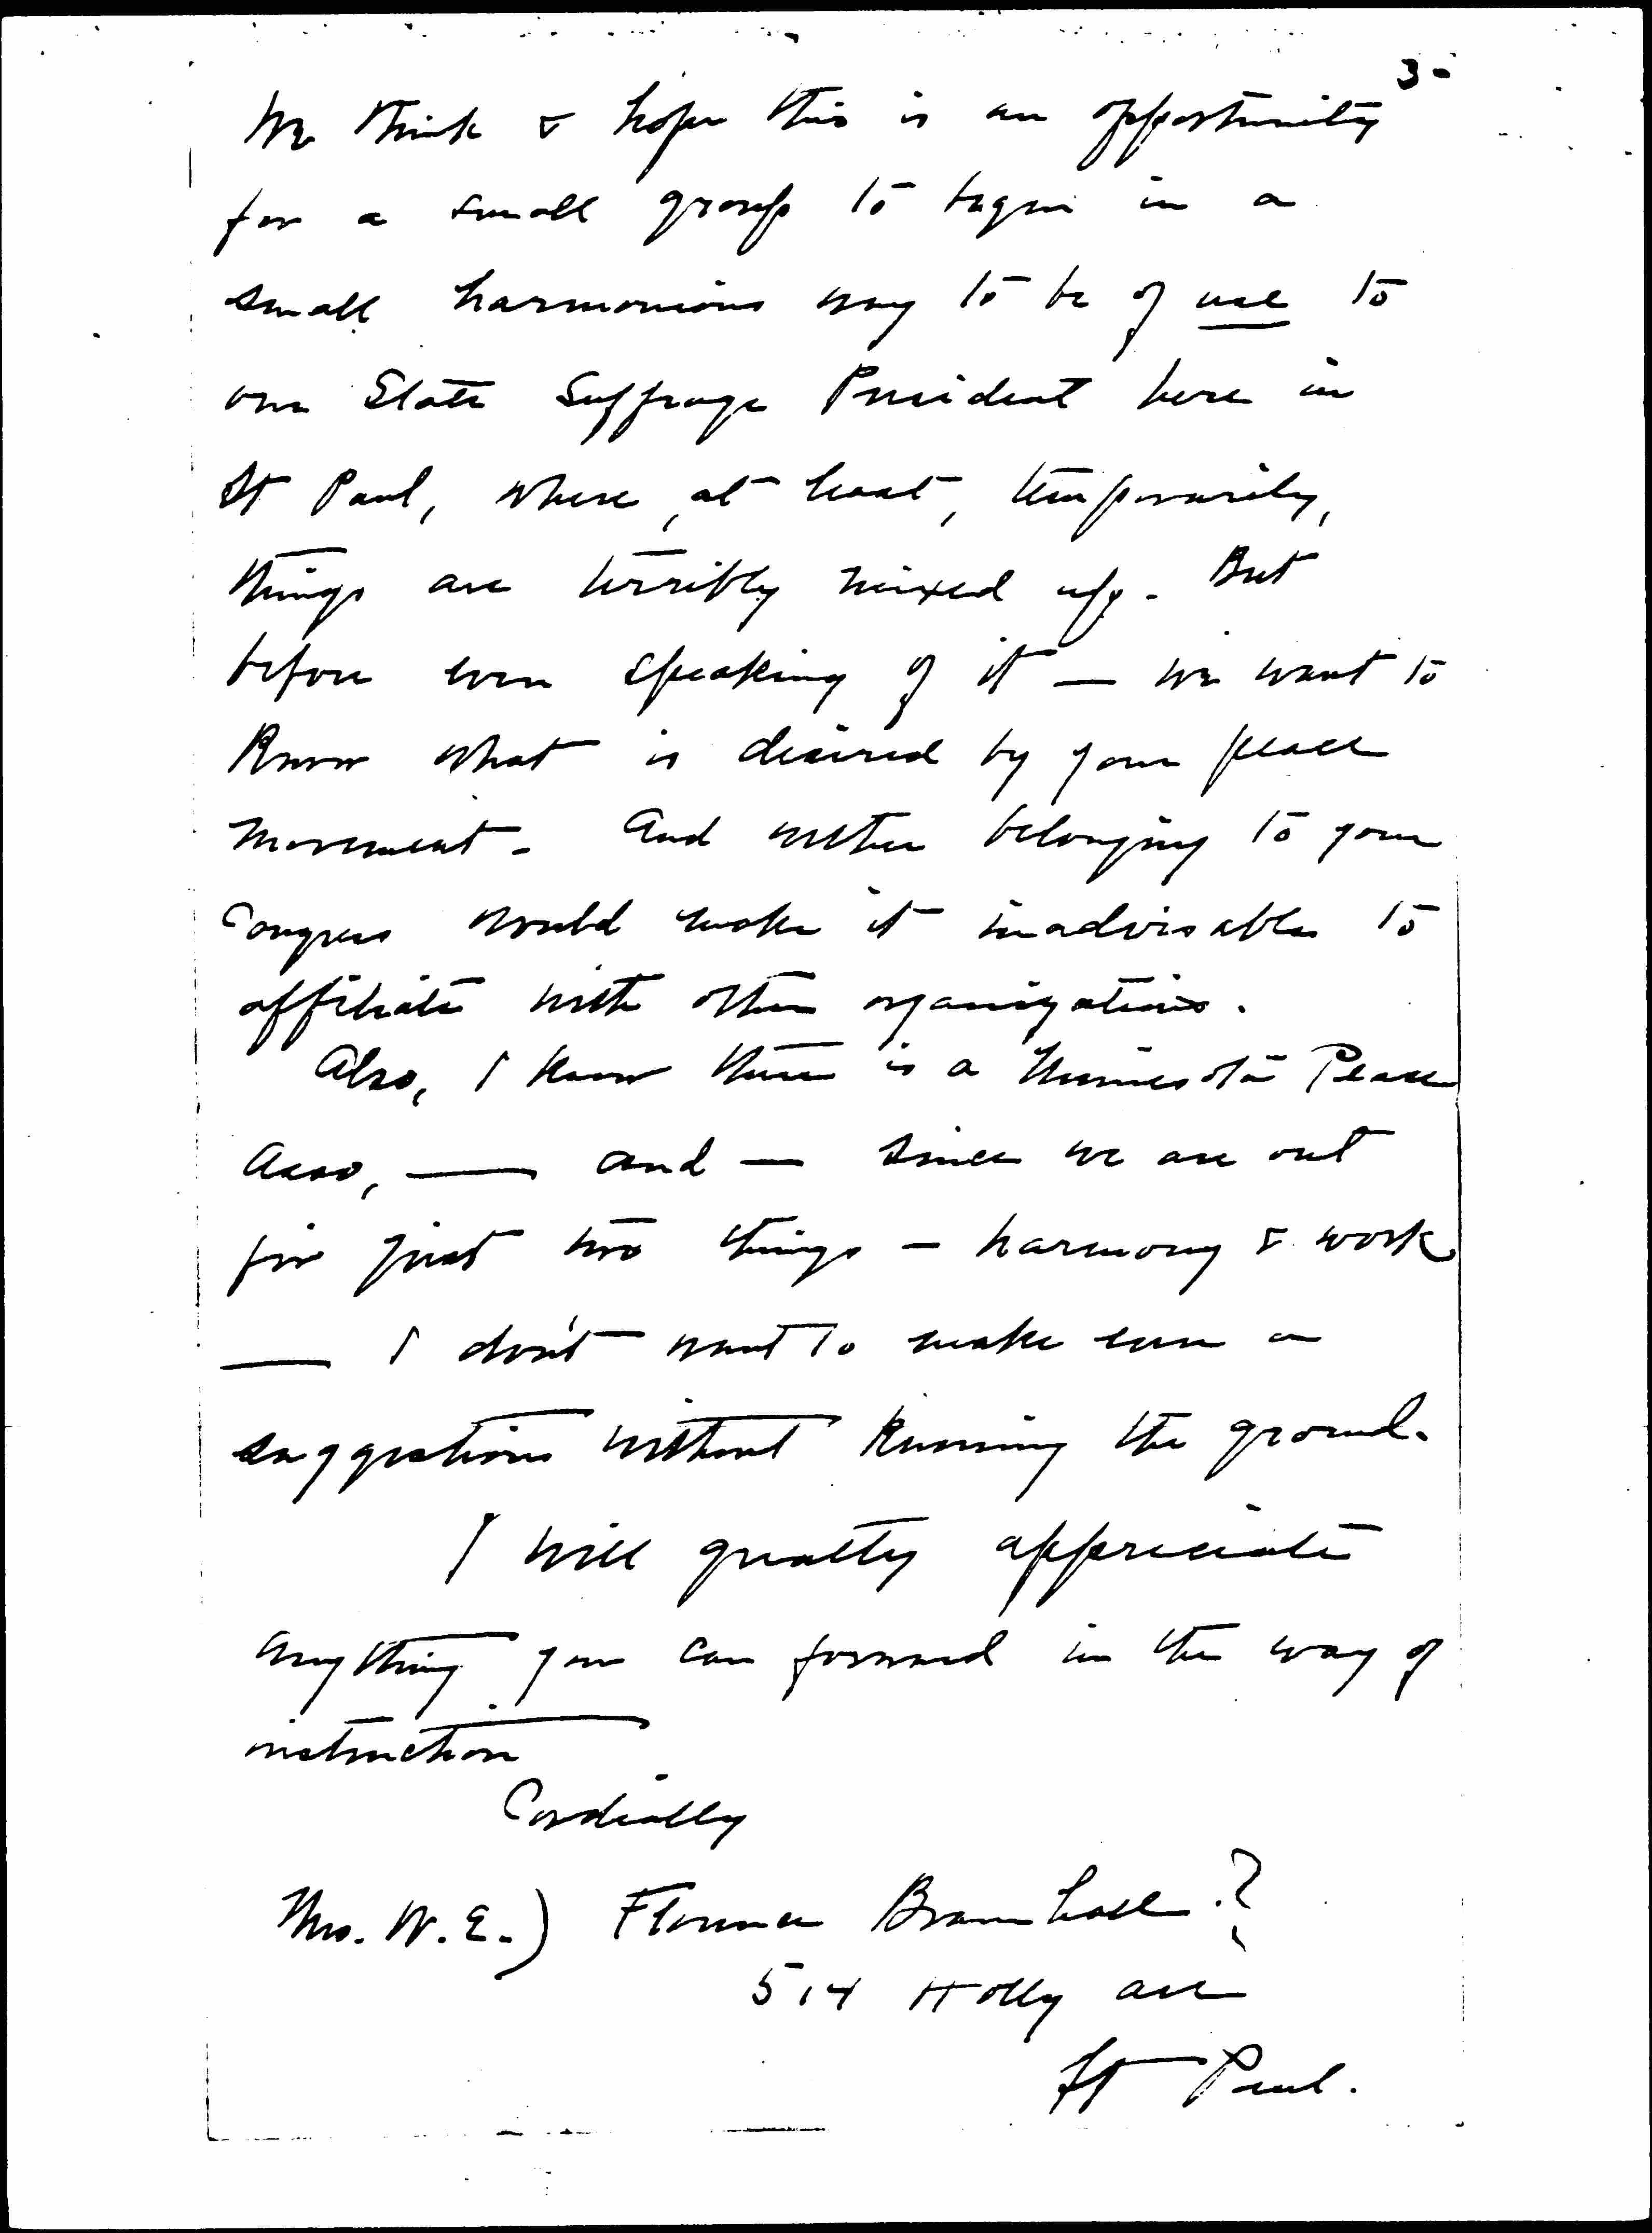 3-
We think & hope this is an opportunity
for a small group to begin in a
small harmonious way to be of use to
our State Suffrage President here in
St Paul, where, at least, temporarily,
things are terribly mixed up. But
before even speaking of it — we want to
know what is desired by your peace
movement. And wether belonging to your
Congress would make it inadvisable to
affiliate with other organizations.
Also, I know there is a Minnesota Peace
Asso, — and — since we are out
for just two things – harmony & work
— I don't want to make even a
suggestion without knowing the ground.
I will greatly appreciate
anything you can forward in the way of
instruction
Cordially
Mrs. W. E.) Florence Bramhall ?
514 Holly ave
St Paul.